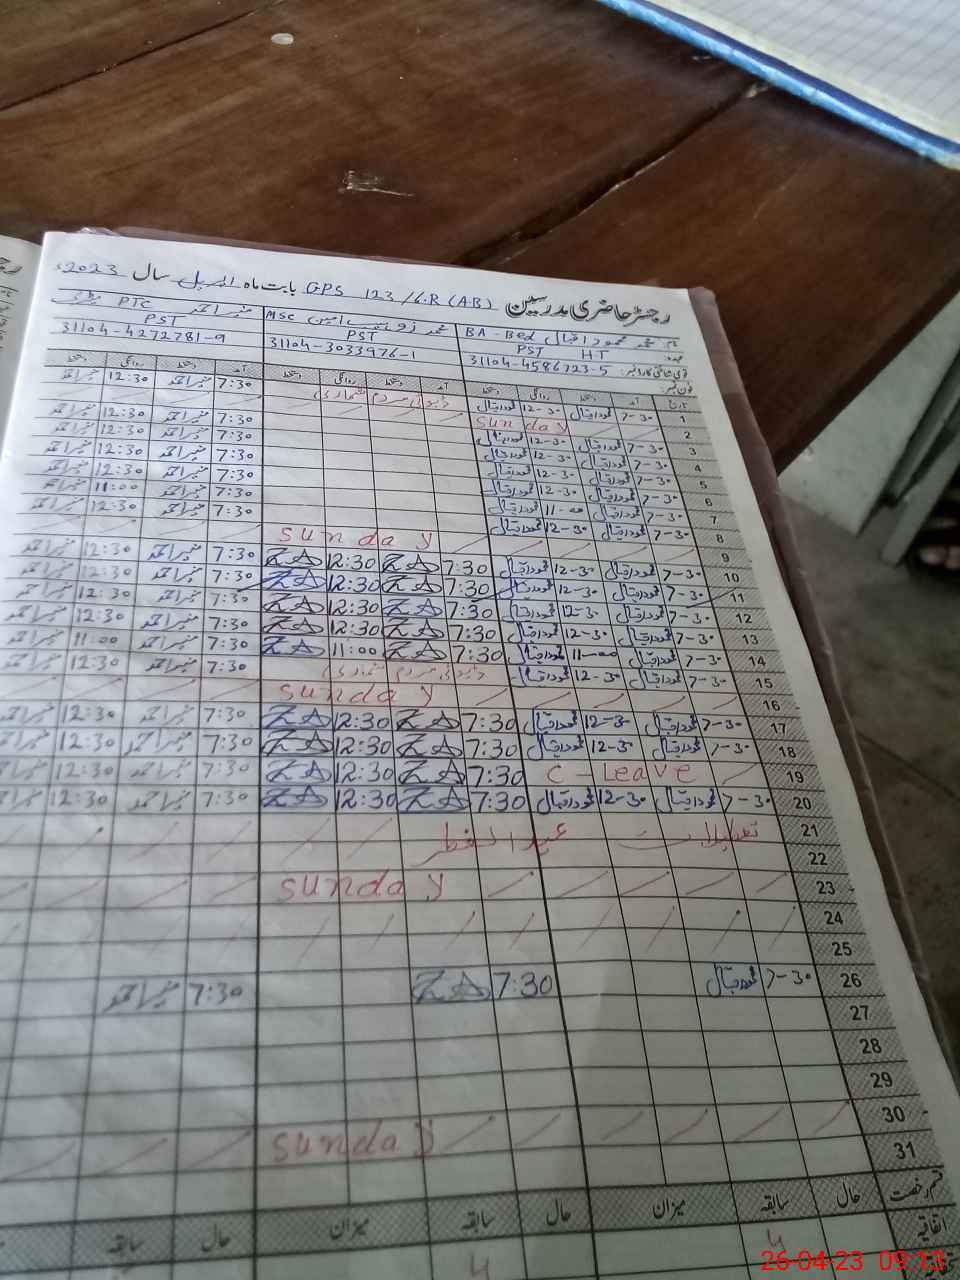 رجسٹر حاضری مدرسین GPS 123/6.R (A.B) بابت ماہ اپریل سال 2023ء
نام محمد محمود اقبال BA - Bed محمد زوہیب امین MSc منیر احمد PTC
عہدہ PST HT PST PST
قومی شناختی کارڈ نمبر: 31104-4586723-5 31104-3033976-1 31104-4272781-9
فون نمبر:
تاریخ آمد دستخط روانگی دستخط آمد دستخط روانگی دستخط آمد دستخط روانگی دستخط
1 7-30 محمود اقبال 12-30 محمود اقبال ڈیوٹی مردم شماری 7:30 منیر احمد 12:30 منیر احمد
2 Sunday
3 7-30 محمود اقبال 12-30 محمود اقبال 7:30 منیر احمد 12:30 منیر احمد
4 7-30 محمود اقبال 12-30 محمود اقبال 7:30 منیر احمد 12:30 منیر احمد
5 7-30 محمود اقبال 12-30 محمود اقبال 7:30 منیر احمد 12:30 منیر احمد
6 7-30 محمود اقبال 12-30 محمود اقبال 7:30 منیر احمد 12:30 منیر احمد
7 7-30 محمود اقبال 11-00 محمود اقبال 7:30 منیر احمد 11:00 منیر احمد
8 7-30 محمود اقبال 12-30 محمود اقبال 7:30 منیر احمد 12:30 منیر احمد
9 Sunday
10 7-30 محمود اقبال 12-30 محمود اقبال 7:30 ZA 12:30 ZA 7:30 منیر احمد 12:30 منیر احمد
11 7-30 محمود اقبال 12-30 محمود اقبال 7:30 ZA 12:30 ZA 7:30 منیر احمد 12:30 منیر احمد
12 7-30 محمود اقبال 12-30 محمود اقبال 7:30 ZA 12:30 ZA 7:30 منیر احمد 12:30 منیر احمد
13 7-30 محمود اقبال 12-30 محمود اقبال 7:30 ZA 12:30 ZA 7:30 منیر احمد 12:30 منیر احمد
14 7-30 محمود اقبال 11-00 محمود اقبال 7:30 ZA 11:00 ZA 7:30 منیر احمد 11:00 منیر احمد
15 7-30 محمود اقبال 12-30 محمود اقبال ڈیوٹی مردم شماری 7:30 منیر احمد 12:30 منیر احمد
16 Sunday
17 7-30 محمود اقبال 12-30 محمود اقبال 7:30 ZA 12:30 ZA 7:30 منیر احمد 12:30 منیر احمد
18 7-30 محمود اقبال 12-30 محمود اقبال 7:30 ZA 12:30 ZA 7:30 منیر احمد 12:30 منیر احمد
19 C-Leave 7:30 ZA 12:30 ZA 7:30 منیر احمد 12:30 منیر احمد
20 7-30 محمود اقبال 12-30 محمود اقبال 7:30 ZA 12:30 ZA 7:30 منیر احمد 12:30 منیر احمد
21 تعطیلات عید الفطر
22
23 Sunday
24
25
26 7-30 محمود اقبال 7:30 ZA 7:30 منیر احمد
27
28
29
30 Sunday
31
قسم رخصت حال سابقہ میزان حال سابقہ میزان حال سابقہ
اتفاقیہ 4 4
26-04-23 09:13